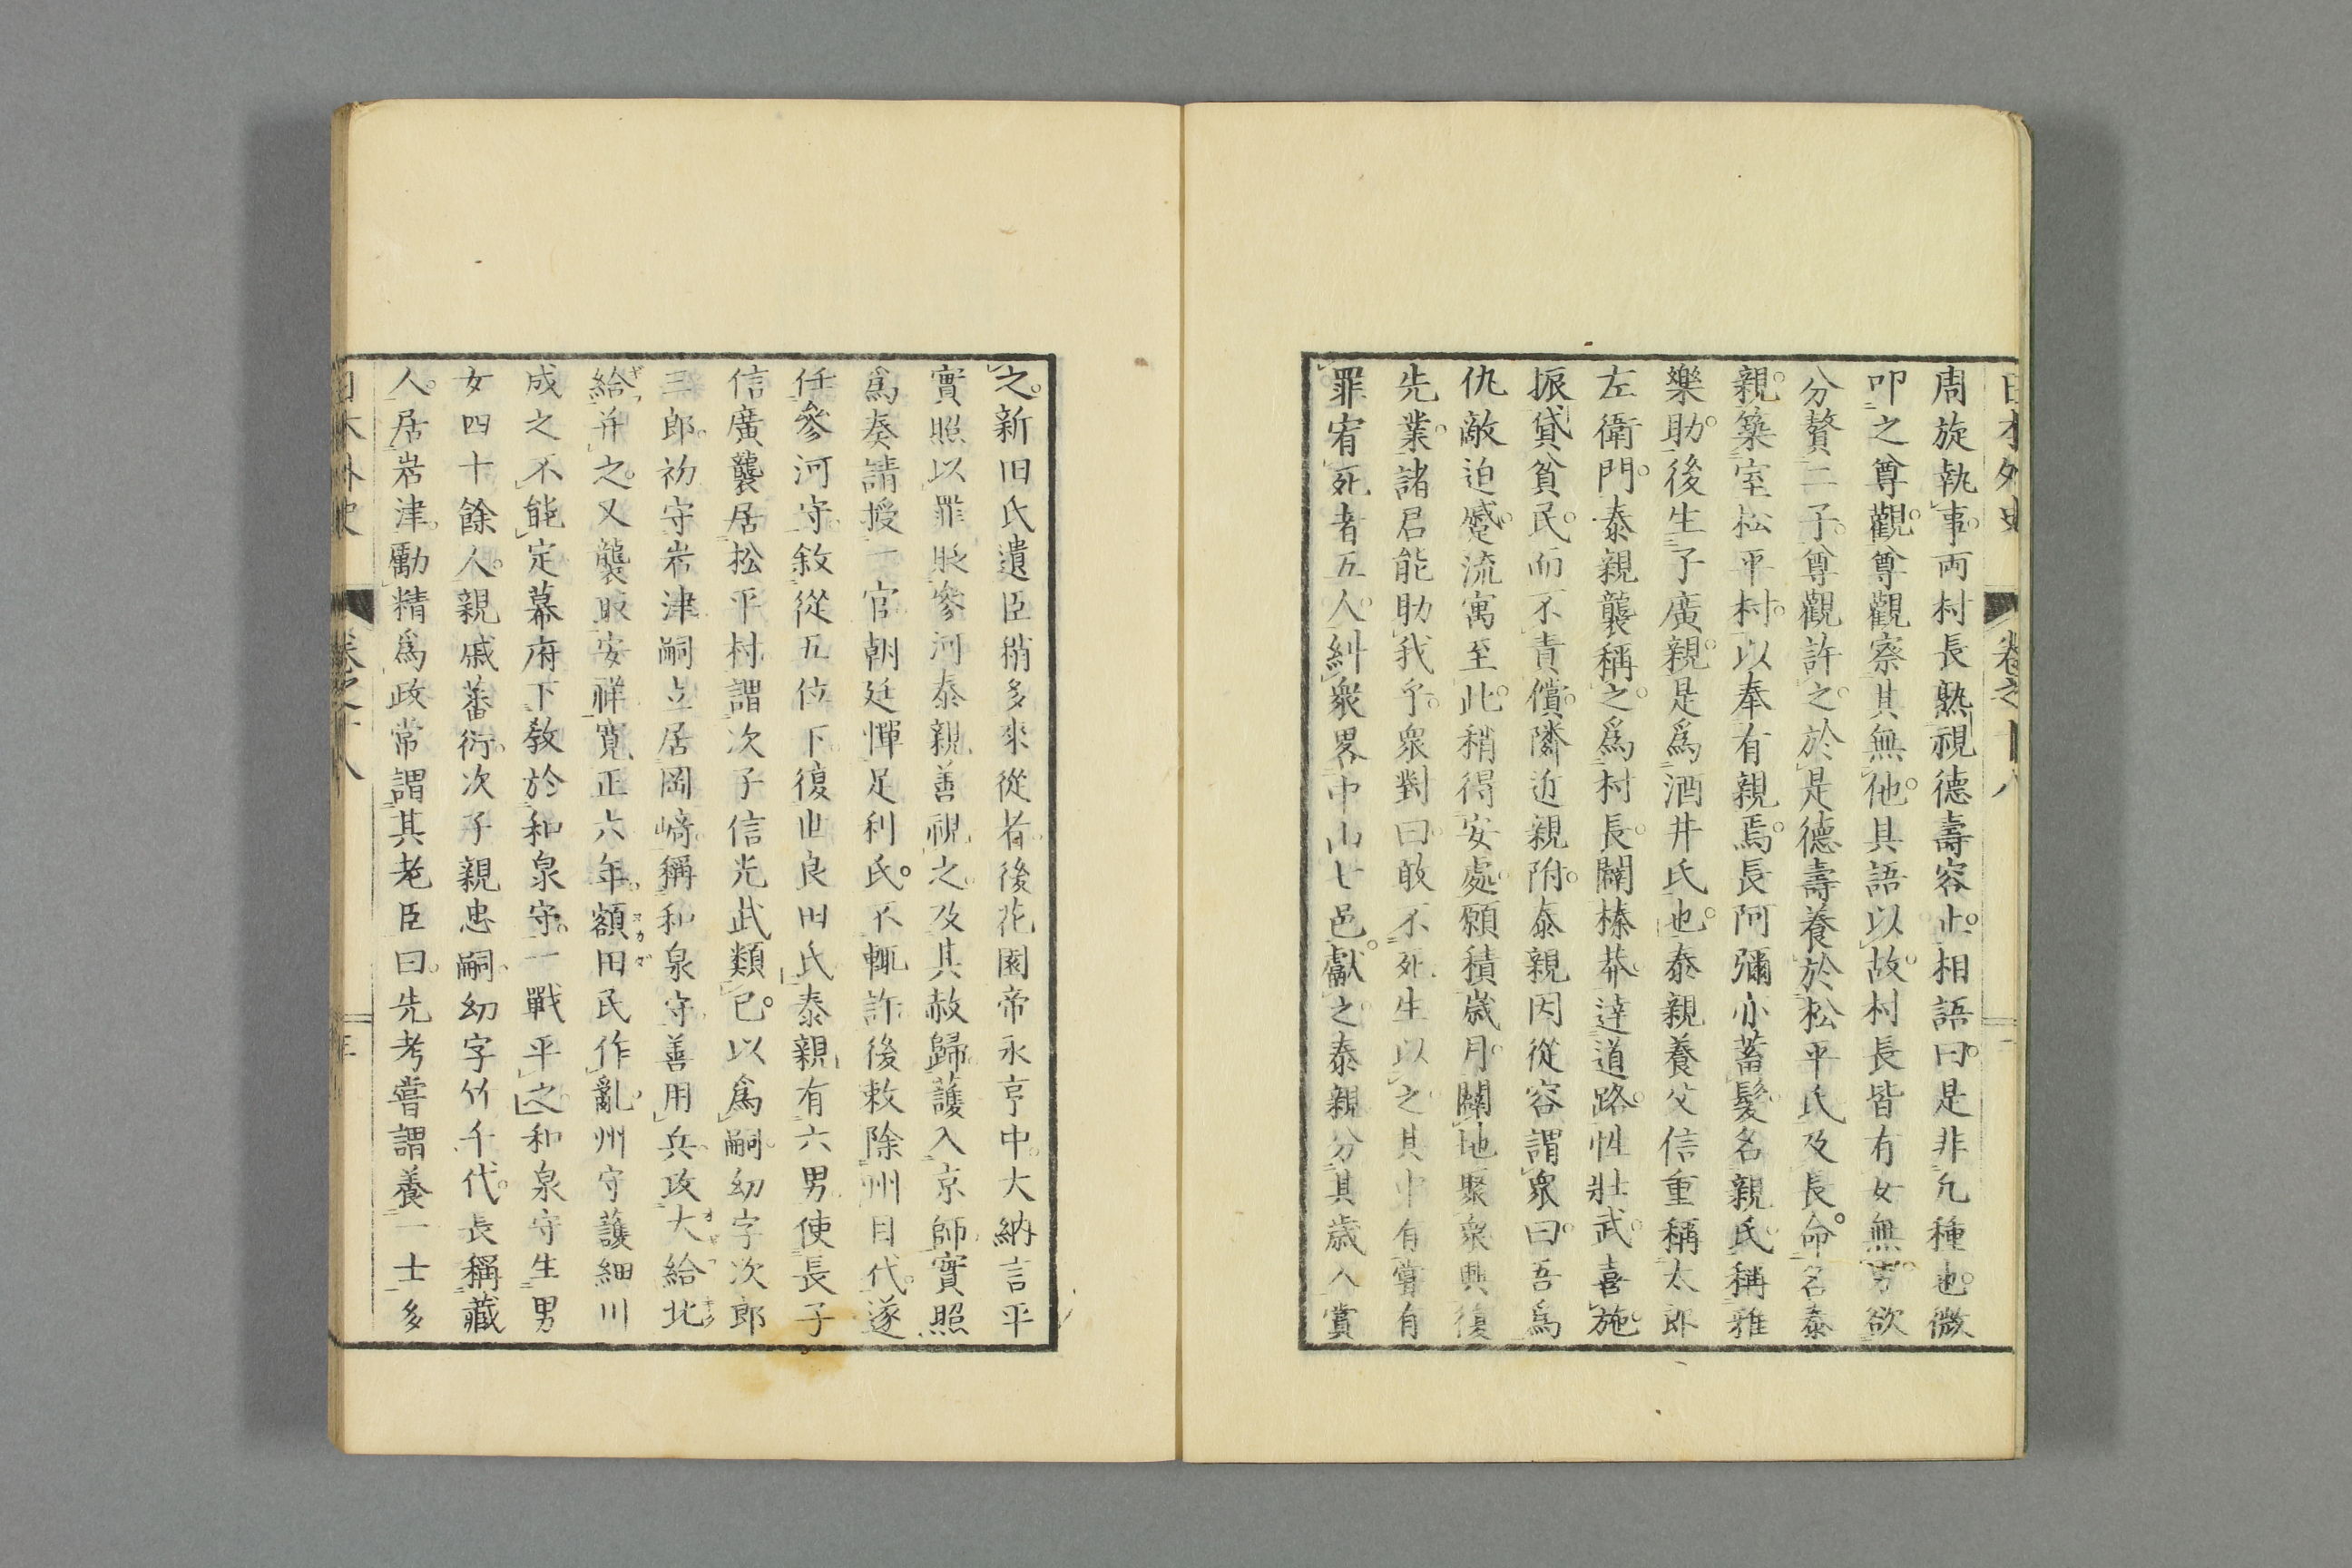 日本外史 卷之十八 二
周旋執事。兩村長熟視德壽容止。相語曰。是非凡種也。微
叩之尊觀。尊觀察其無他。具語以故。村長皆有女無男。欲
分贅二子。尊觀許之。於是德壽養於松平氏。及長。命名泰
親。築室松平村。以奉有親焉。長阿彌亦蓄髮。名親氏。稱雅
樂助。後生子廣親。是爲酒井氏也。泰親養父信重稱太郎
左衛門。泰親襲稱之。爲村長。闢榛莽。達道路。性壯武。喜施。
振貸貧民。而不責償。隣近親附。泰親因從容謂衆曰。吾爲
仇敵迫蹙。流寓至此。稍得安處。願積歲月。闢地聚衆。興復
先業。諸君能助我乎。衆對曰。敢不死生以之。其中有嘗有
罪宥死者五人。糾衆畧中山七邑。獻之。泰親分其歲入賞
之。新田氏遺臣稍多來從者。後花園帝永亨中。大納言平
實照以罪貶參河。泰親善視之。及其赦歸。護入京師。實照
爲奏請授一官。朝廷憚足利氏。不輒許。後敕除州目代。遂
任參河守。敘從五位下。復世良田氏。泰親有六男。使長子
信廣襲居松平村。謂次子信光武類已。以爲嗣。幼字次郎
三郎。初守岩津。嗣立居岡﨑。稱和泉守。善用兵。攻大給北
給并之。又襲取安祥。寬正六年。額田民作亂。州守護細川
成之不能定。幕府下敎於和泉守。一戰平之。和泉守生男
女四十餘人。親戚蕃衍。次子親忠嗣。幼字竹千代。長稱藏
人。居岩津。勵精爲政。常謂其老臣曰。先考嘗謂養一士多
日本外史 卷之十八 三